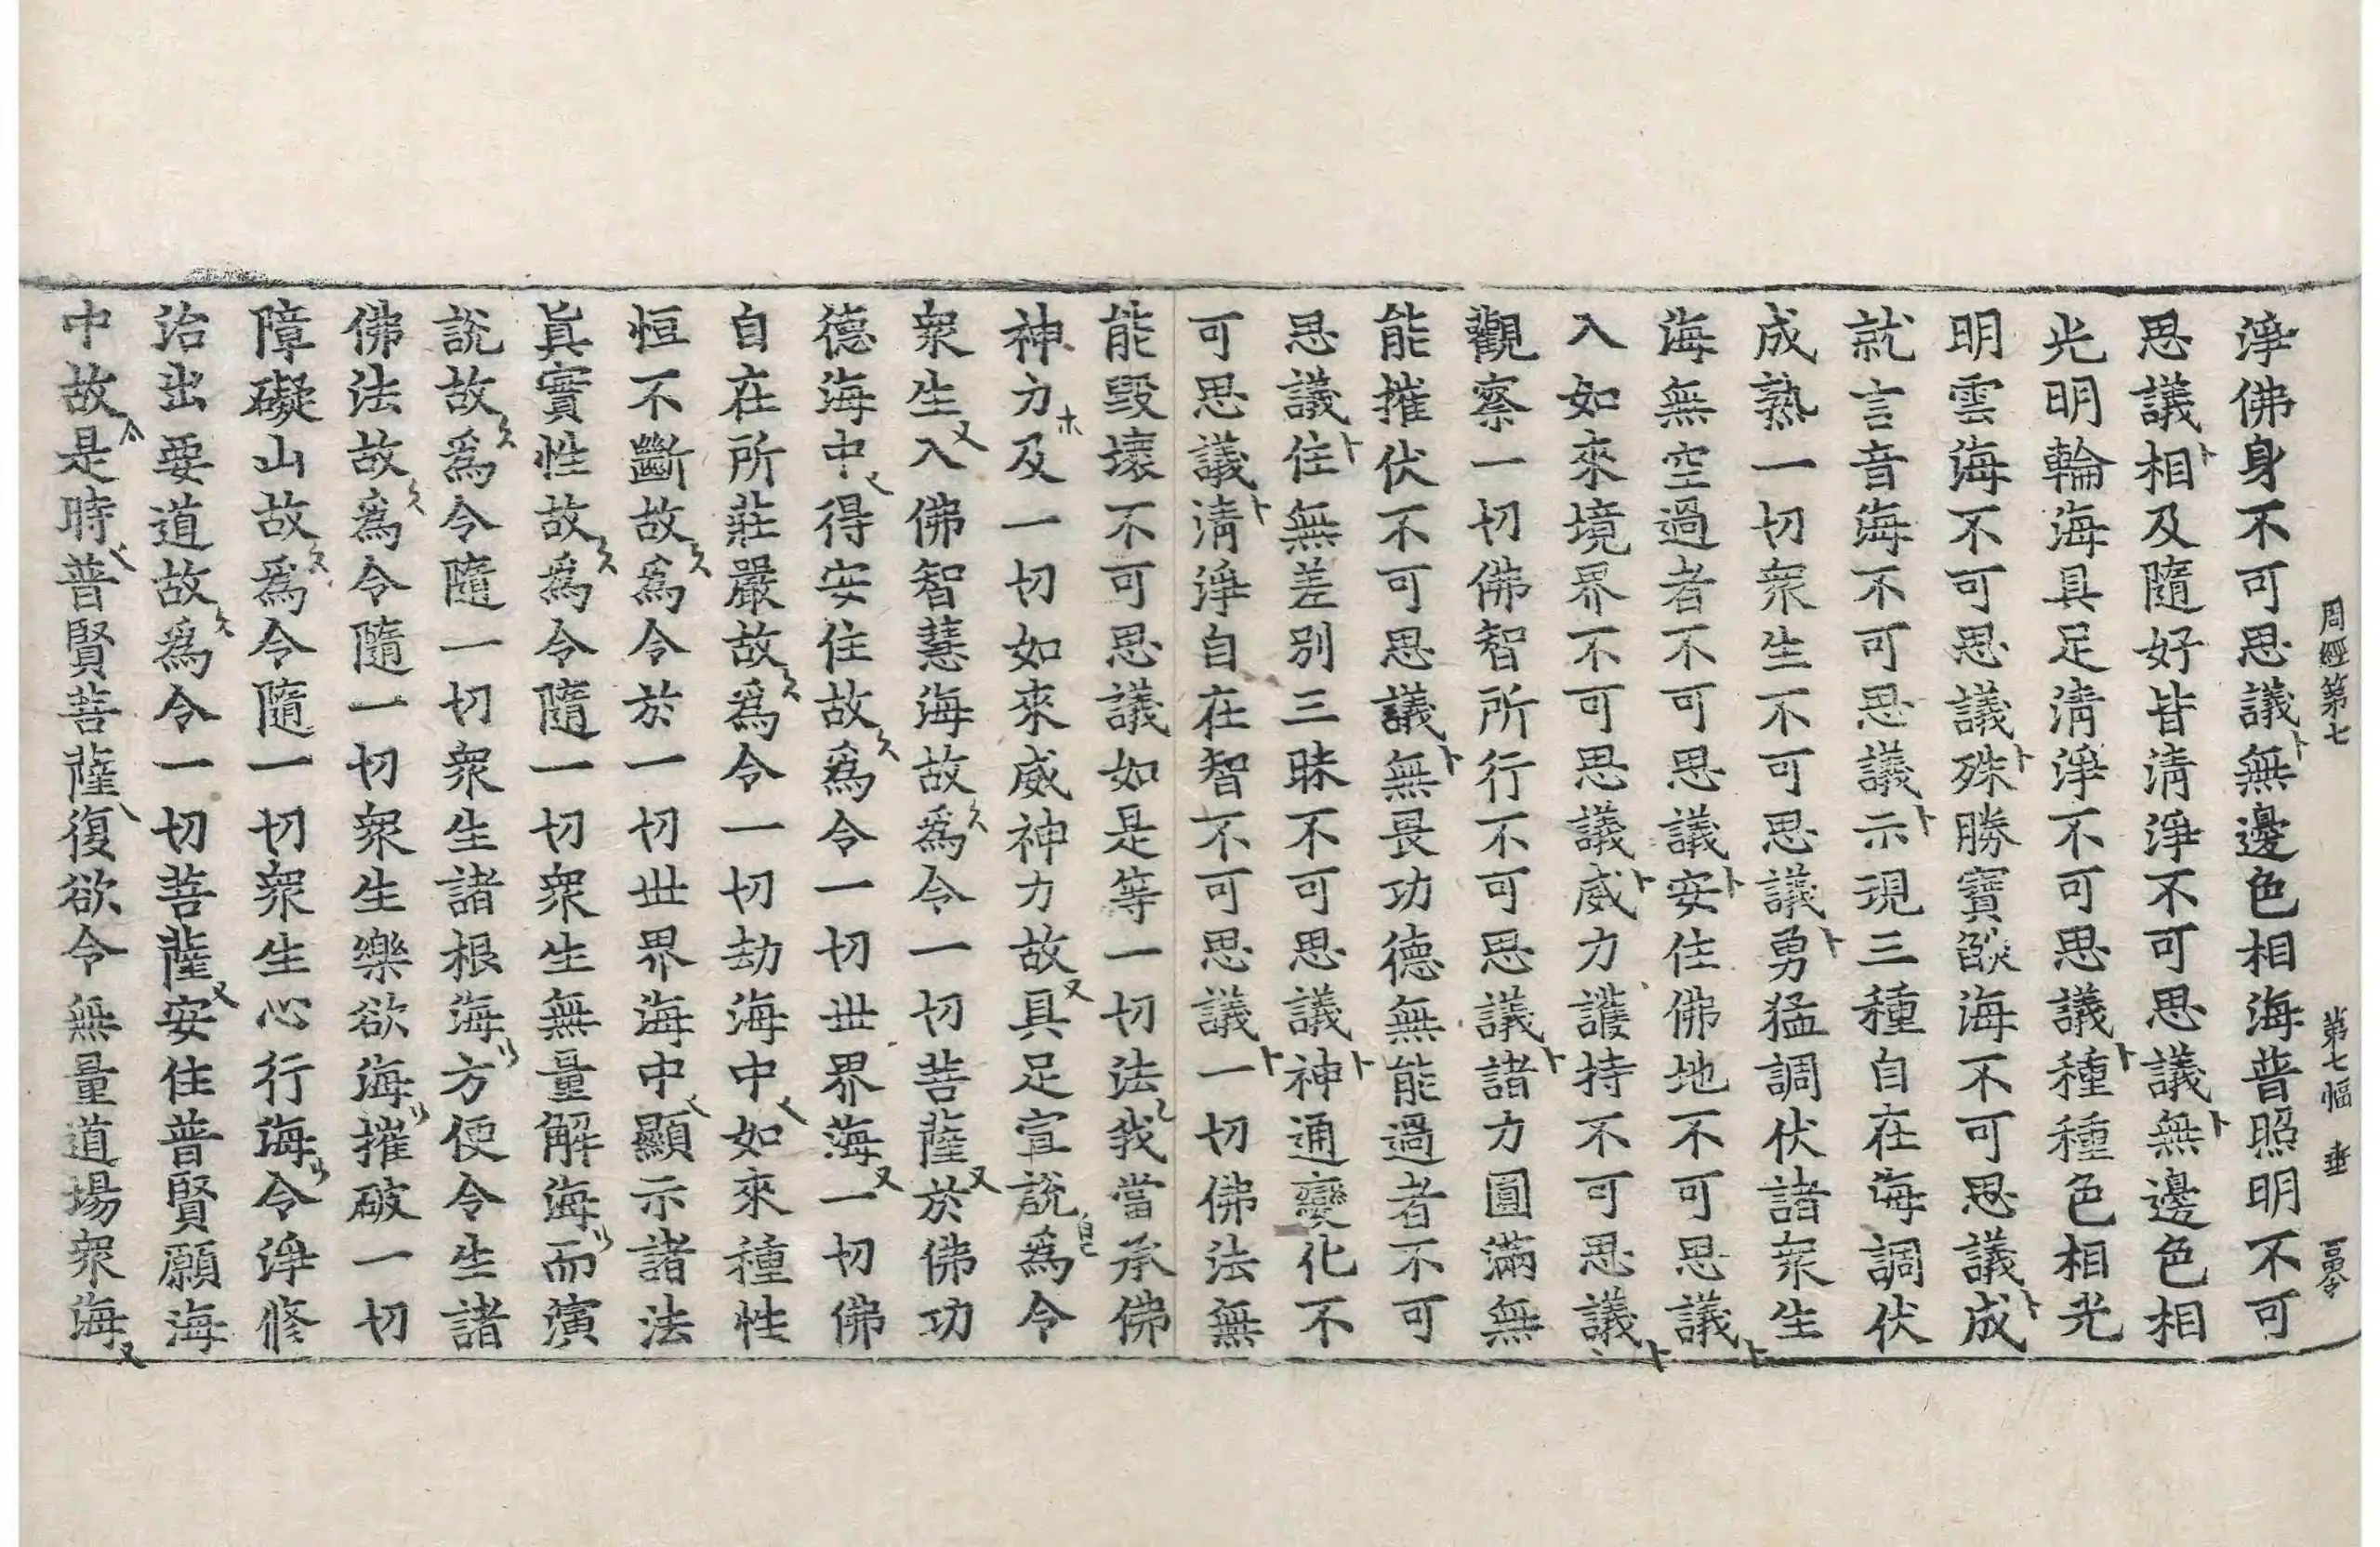 周經第七　第七幅　垂
淨佛身不可思議無邊色相海普照明不可
思議相及隨好皆清淨不可思議無邊色相
光明輪海具足清淨不可思議種種色相光
明雲海不可思議殊勝寶燄海不可思議成
就言音海不可思議示現三種自在海調伏
成熟一切衆生不可思議勇猛調伏諸衆生
海無空過者不可思議安住佛地不可思議
入如來境界不可思議威力護持不可思議
觀察一切佛智所行不可思議諸力圓滿無
能摧伏不可思議無畏功德無能過者不可
思議住無差別三昧不可思議神通變化不
可思議清淨自在智不可思議一切佛法無
能毀壞不可思議如是等一切法我當承佛
神力及一切如來威神力故具足宣說爲令
衆生入佛智慧海故爲令一切菩薩於佛功
德海中得安住故爲令一切世界海一切佛
自在所莊嚴故爲令一切劫海中如來種性
恒不斷故爲令於一切世界海中顯示諸法
眞實性故爲令隨一切衆生無量解海而演
說故爲令隨一切衆生諸根海方便令生諸
佛法故爲令隨一切衆生樂欲海摧破一切
障礙山故爲令隨一切衆生心行海令淨修
治出要道故爲令一切菩薩安住普賢願海
中故是時普賢菩薩復欲令無量道場衆海